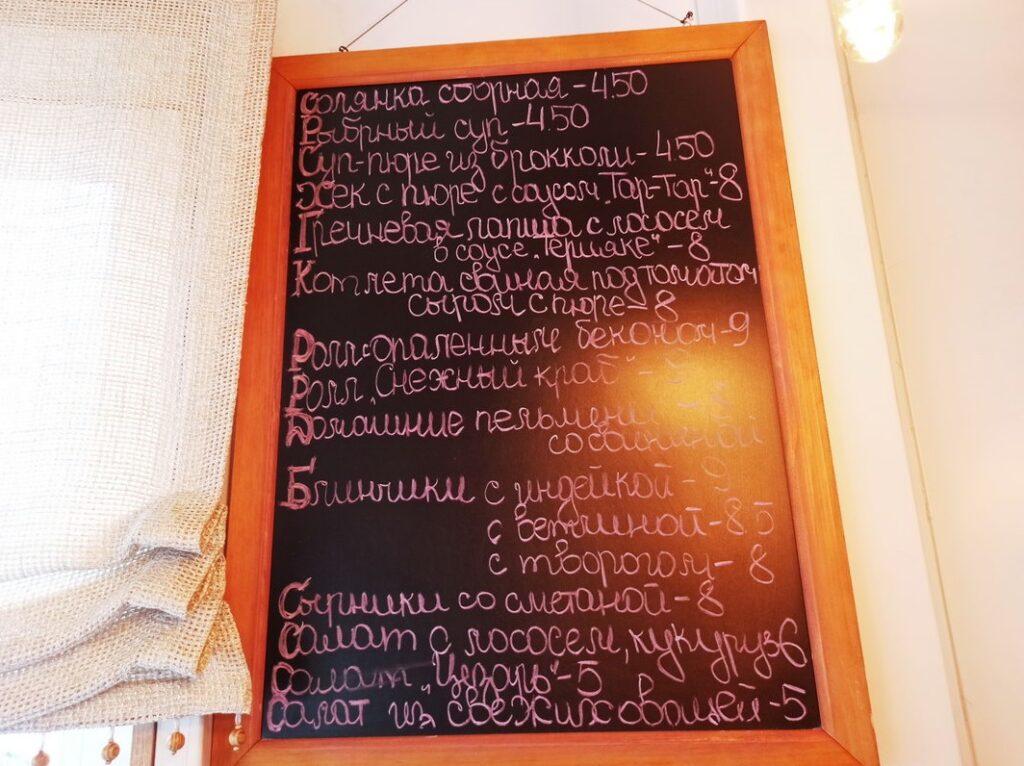 Солянка сборная - 4.50
Рыбный суп - 4.50
Суп-пюре из брокколи - 4.50
Хек с пюре с соусом "Тар-Тар" - 8
Гречневая лапша с лососем
в соусе "Терияке" - 8
Котлета свиная под томатом
сыром с пюре - 8
Ролл с опаленным беконом - 9
Ролл "Снежный краб" - 9
Домашние пельмени - 8
со свининой
Блинчики с индейкой - 9
с ветчиной - 8.5
с творогом - 8
Сырники со сметаной - 8
Салат с лососем, кукуруз 6
Салат "Цезарь" - 5
Салат из свежих овощей - 5